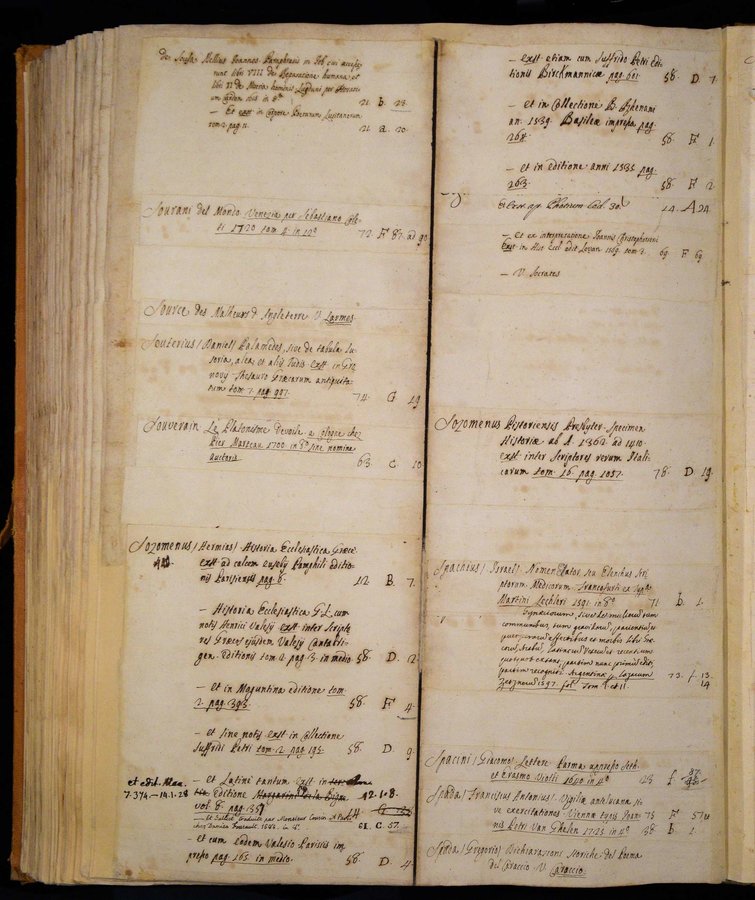 de Sousa Bellius Joannes Paraphrasis in Job cui
runt libri VIII de Reparatione humana, et
libri VI de Maria hominis Lugduni per Horati
um Cardon 1615 in 8°
21. b. 23.
— Et exst in Corpore Poetarum Lusitanorum
tom. 2. pag. 11.
21. a. 20.
Sourani del Mondo Venezia per Sebastiano Cole
ti 1720 tom. 4. in 12°
72. F 87. ad 90
Source des Malheurs d'Ingleterre V. Larmes
Souterius (Daniel) Palamedes, sive de tabula lu
soria, alea, et aliis ludis exst. in Gro
novij Thesauro Græcarum antiquita
tum tom. 7. pag. 997.
74. G 49
Souverain Le Platonisme devoilé a Cologne chez
Pier Marteau 1700 in 8° sine nomine
auctoris
63. C. 10.
Sozomenus (Hermias) Historia Ecclesiastica Græce
exst ad calcem Eusebij Pamphili editio
nis Parisiensis pag. 6.
42 B. 7.
— Historia Ecclesiastica G.L. cum
notis Henrici Valesij exst inter Scripto
res Græcos ejusdem Valesij Cantabri
gien. Editionis tom. 2. pag. 3. in medio
58. D. 12.
— et in Maguntina editione tom.
2. pag. 393.
58. F 4.
— et sine notis exst in Collectione
Suffridi Petri tom. 2. pag. 195.
58. D. 9
et edit.
7.374.—14.1.28
— et Latine tantum exst in
Editione Margarini de la Bigne
vol. 8. pag. 135
42.1.8.
14
— Et traduite par Monsieur Cousin A Paris
chez Damien Foucault
61. C. 57.
— et cum eodem Valesio Parisiis im
presso pag. 165. in medio.
58. D. 4
— exst etiam cum Suffrido Petri Edi
tionis Birckmannicæ pag. 601.
58. D 7.
— et in Collectione B. Rhenani
an. 1539. Basileæ impressa pag.
264.
58. F 1
— et in editione anni 1535 pag.
263.
58. F 2
ap. Photium Cod. 30.
14. A 24.
— Et ex interpretatione Joannis Christophorsoni
Exst in Hist Eccl edit Lovan 1569. tom. 2.
69. F 69.
— V. Socrates
Sozomenus Historiensis Presbyter Specimen
Historiæ ab A. 1362 ad 1410.
exst. inter Scriptores rerum Itali
carum tom. 16. pag. 1057.
78. D. 19
Spachius (Israel) Nomenclator, seu Elenchus Scri
ptorum Medicorum. Francofurti ex Typ.
Martini Lechleri 1591. in 8°
71 b. 1.
Gynæciorum, sive de mulierum tum
communibus, tum gravidarum, parientium et
puerperarum affectibus et morbis libri Græ
corum, Arabum, Latinorum Veterum et recentium
quotquot extant, partim nunc primum editi,
partim recogniti. Argentinæ, Lazarum
Zetznerum 1597. fol. Tom. I. et II.
73. f. 13. 14
Spacini (Giacomo) Lettere Parma appresso Seth.
et Erasmo Viotti 1640 in 4°
43 f
Spada (Franciscus Antonius) Vigiliæ Andicana, si
ve exercitationes Viennæ typis Joan
nis Petri Van Ghelen 1723 in 4°
75 F 57
38 b 1
Spada (Gregorio) Dichiarazioni Storiche del Poema
del Braccio V. Braccio